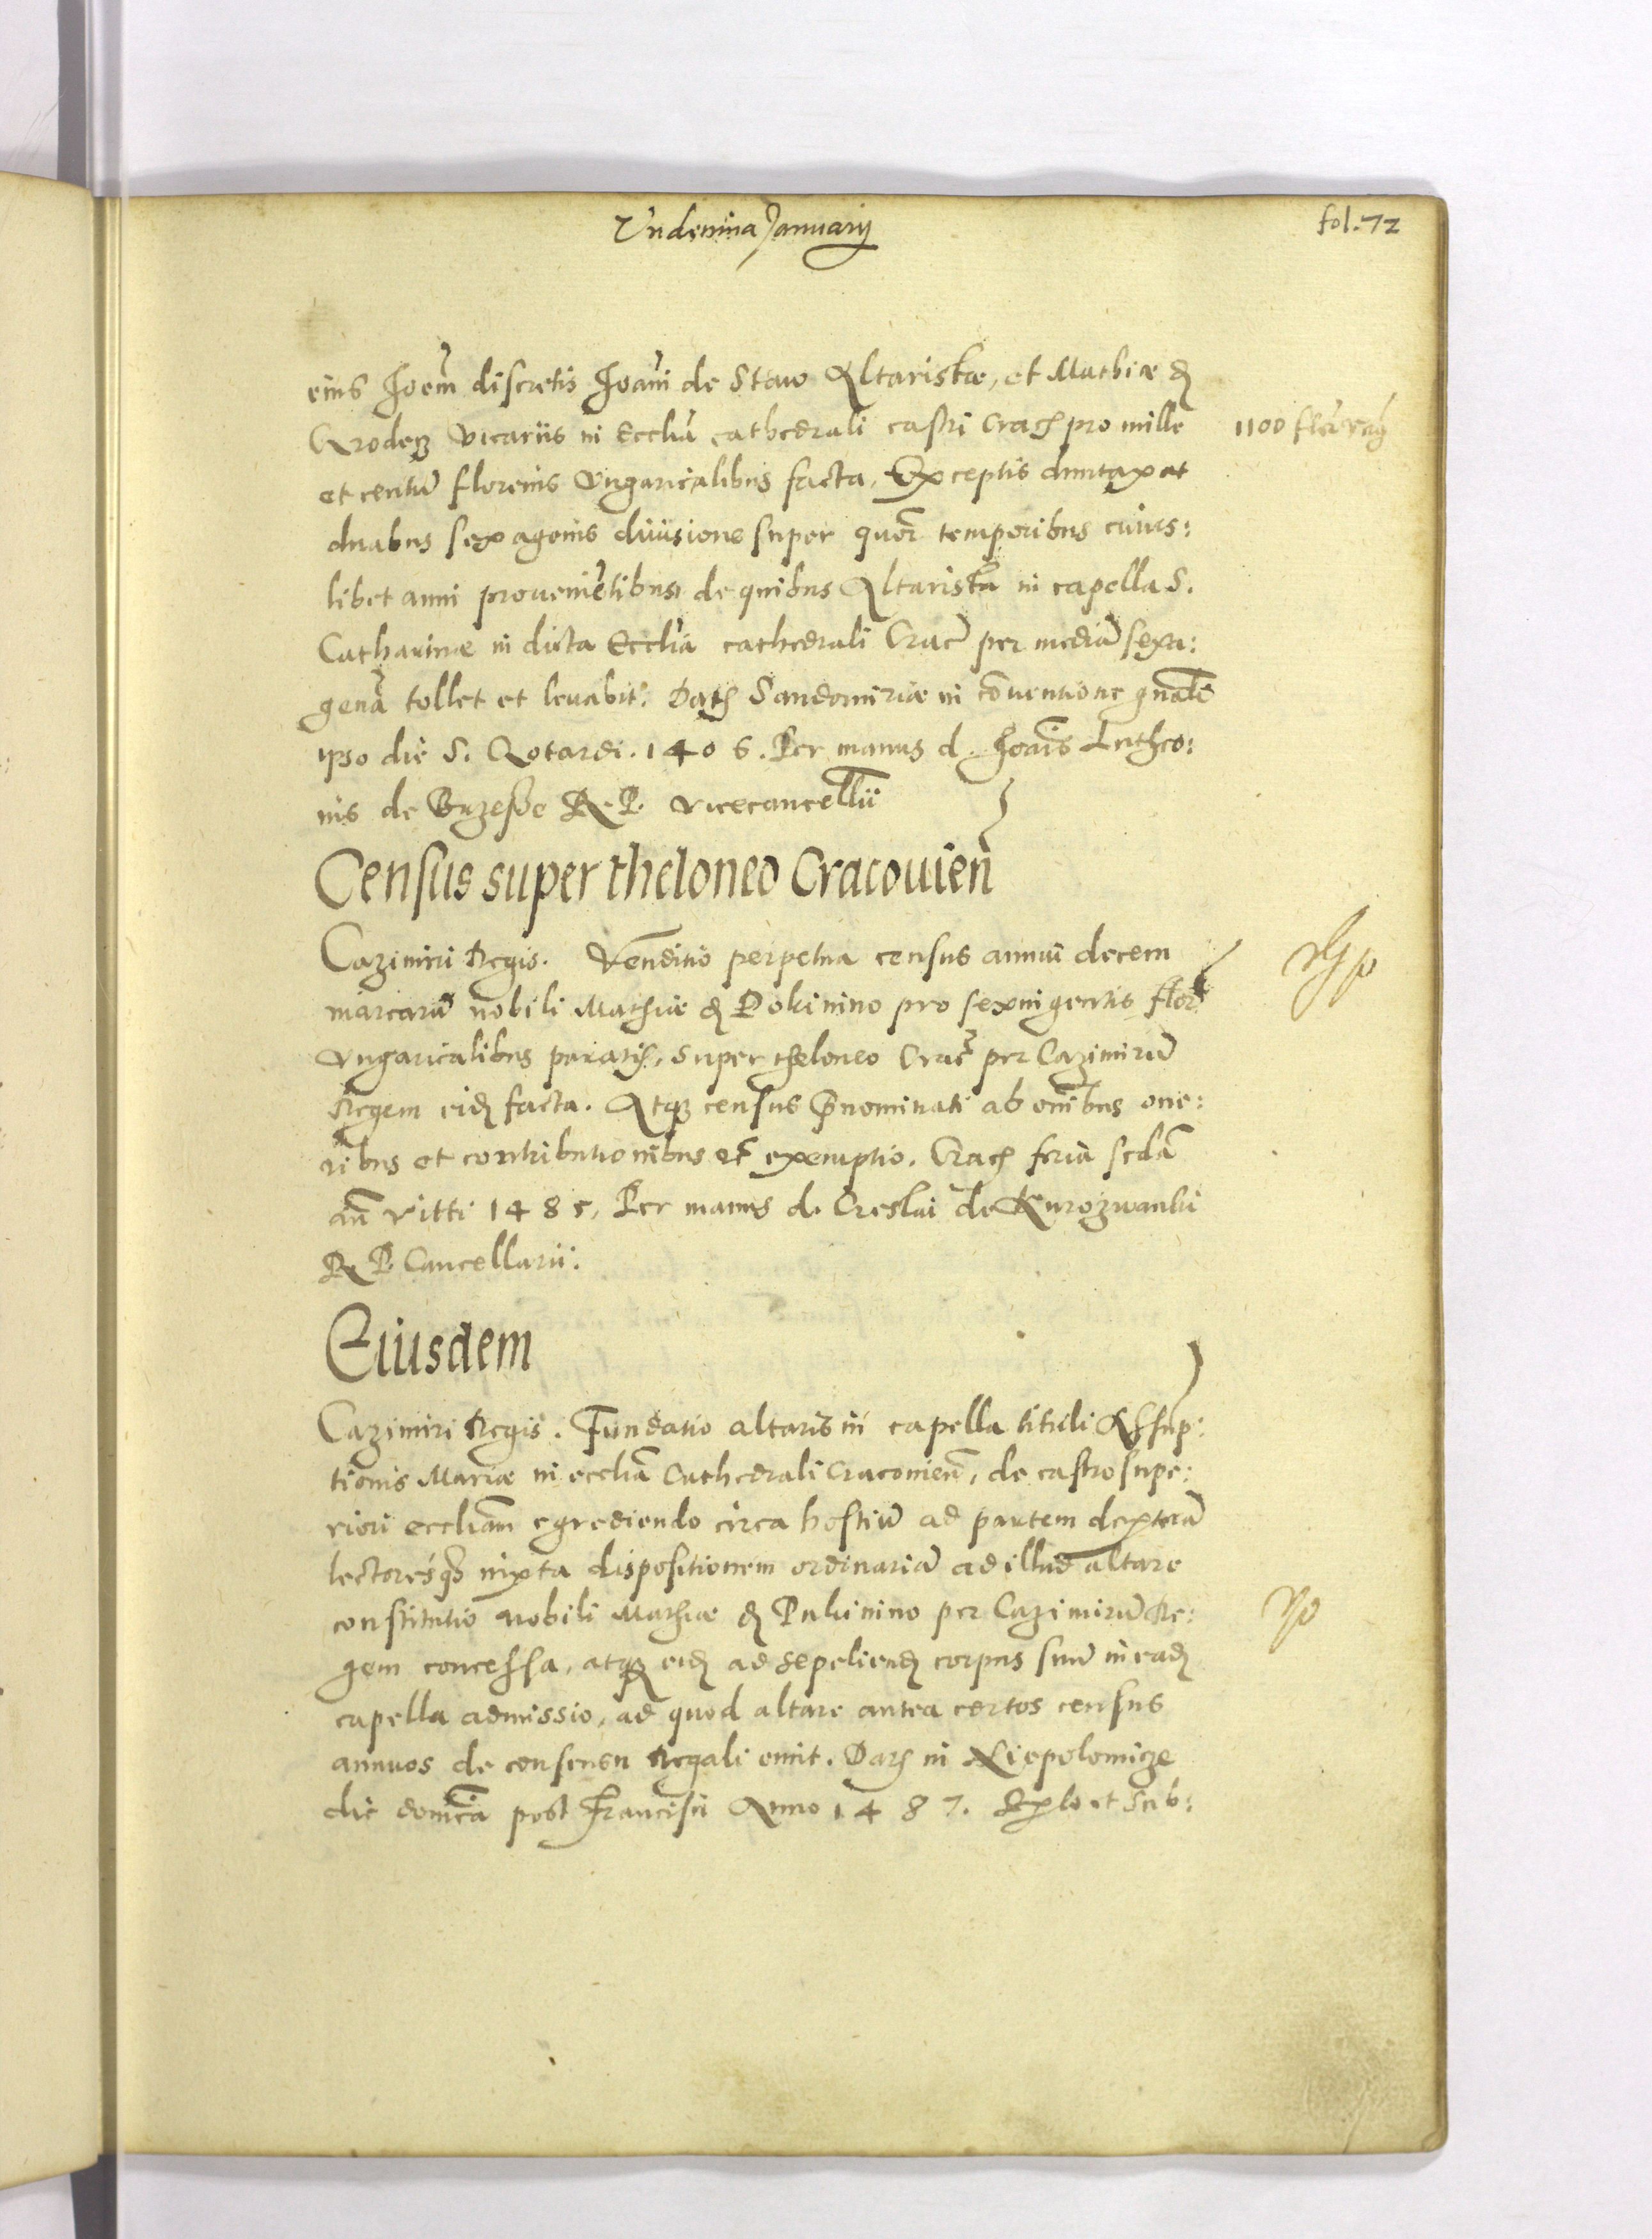 Undecima Januarij
fol. 72
eius Joem̃ discretis Joañi de Staw Altaristæ, et Mathiæ d
Grodez Vicariis in Ecclia cathedrali castri Crach pro mille
1100 flor ung
et centũ florenis Vngaricalibus facta, Exceptis duntaxat
duabus sexagenis divisione super quor temporibus cuius:
libet anni provenientibus, de quibus Altarista in capella S.
Catharinæ in dicta Ecclia cathedrali Crac per mediã sexa:
genã tollet et levabit. Dat Sandomiriæ in cõventione gnali
ipso die S. Gotardi. 1406. Per manus d. Joais
nis de R. P. vicecancellii
Census super theloneo Cracovien
Cazimiri Regis. Venditio perpetua census annui decem
marcarũ nobili Mathiæ d Pokinino pro sexingentis flor
Vngaricalibus paratis, super theloneo Crac per Cazimirũ
Regem eid facta. Atq census pnominati ab omibus one:
ribus et contributionibus et exemptio. Crach feria scda
añ Vitti 1485, Per manus d. Creslai de Kurozwanki
R. P. Cancellarii.
Eiusdem
Cazimiri Regis. Fundatio altaris in capella tituli Assup:
tionis Mariæ in eccliã Cathedrali Cracovien, de castro supe:
riori eccliam egrediendo circa hostiũ ad partem dexterã
lectoresq iuxta dispositionem ordinariã ad illud altare
constitutio nobili Mathiæ d Pukinino per Cazimirũ Re:
gem concessa, atq eid ad sepeliend corpus suũ in ead
capella admissio, ad quod altare antea certos census
annuos de consensu Regali emit. Dat in Niepolomicze
die domica post Francisci Anno 1487. et sub: